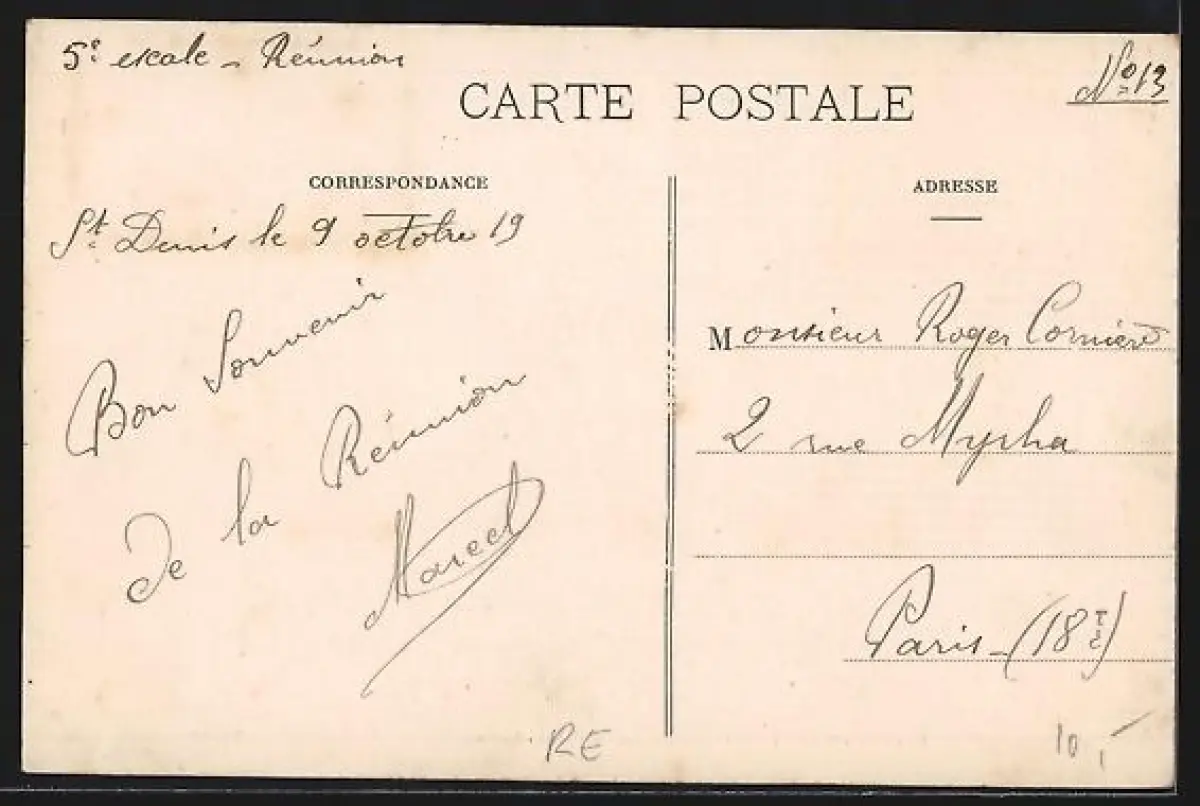 5e escale - Réunion
No 13
CARTE POSTALE
CORRESPONDANCE
St. Denis le 9 octobre 19
Bon Souvenir
de la Réunion
Marcel
ADRESSE
Monsieur Roger Cornière
2 rue Myrha
Paris - (18e)
RE
10,-